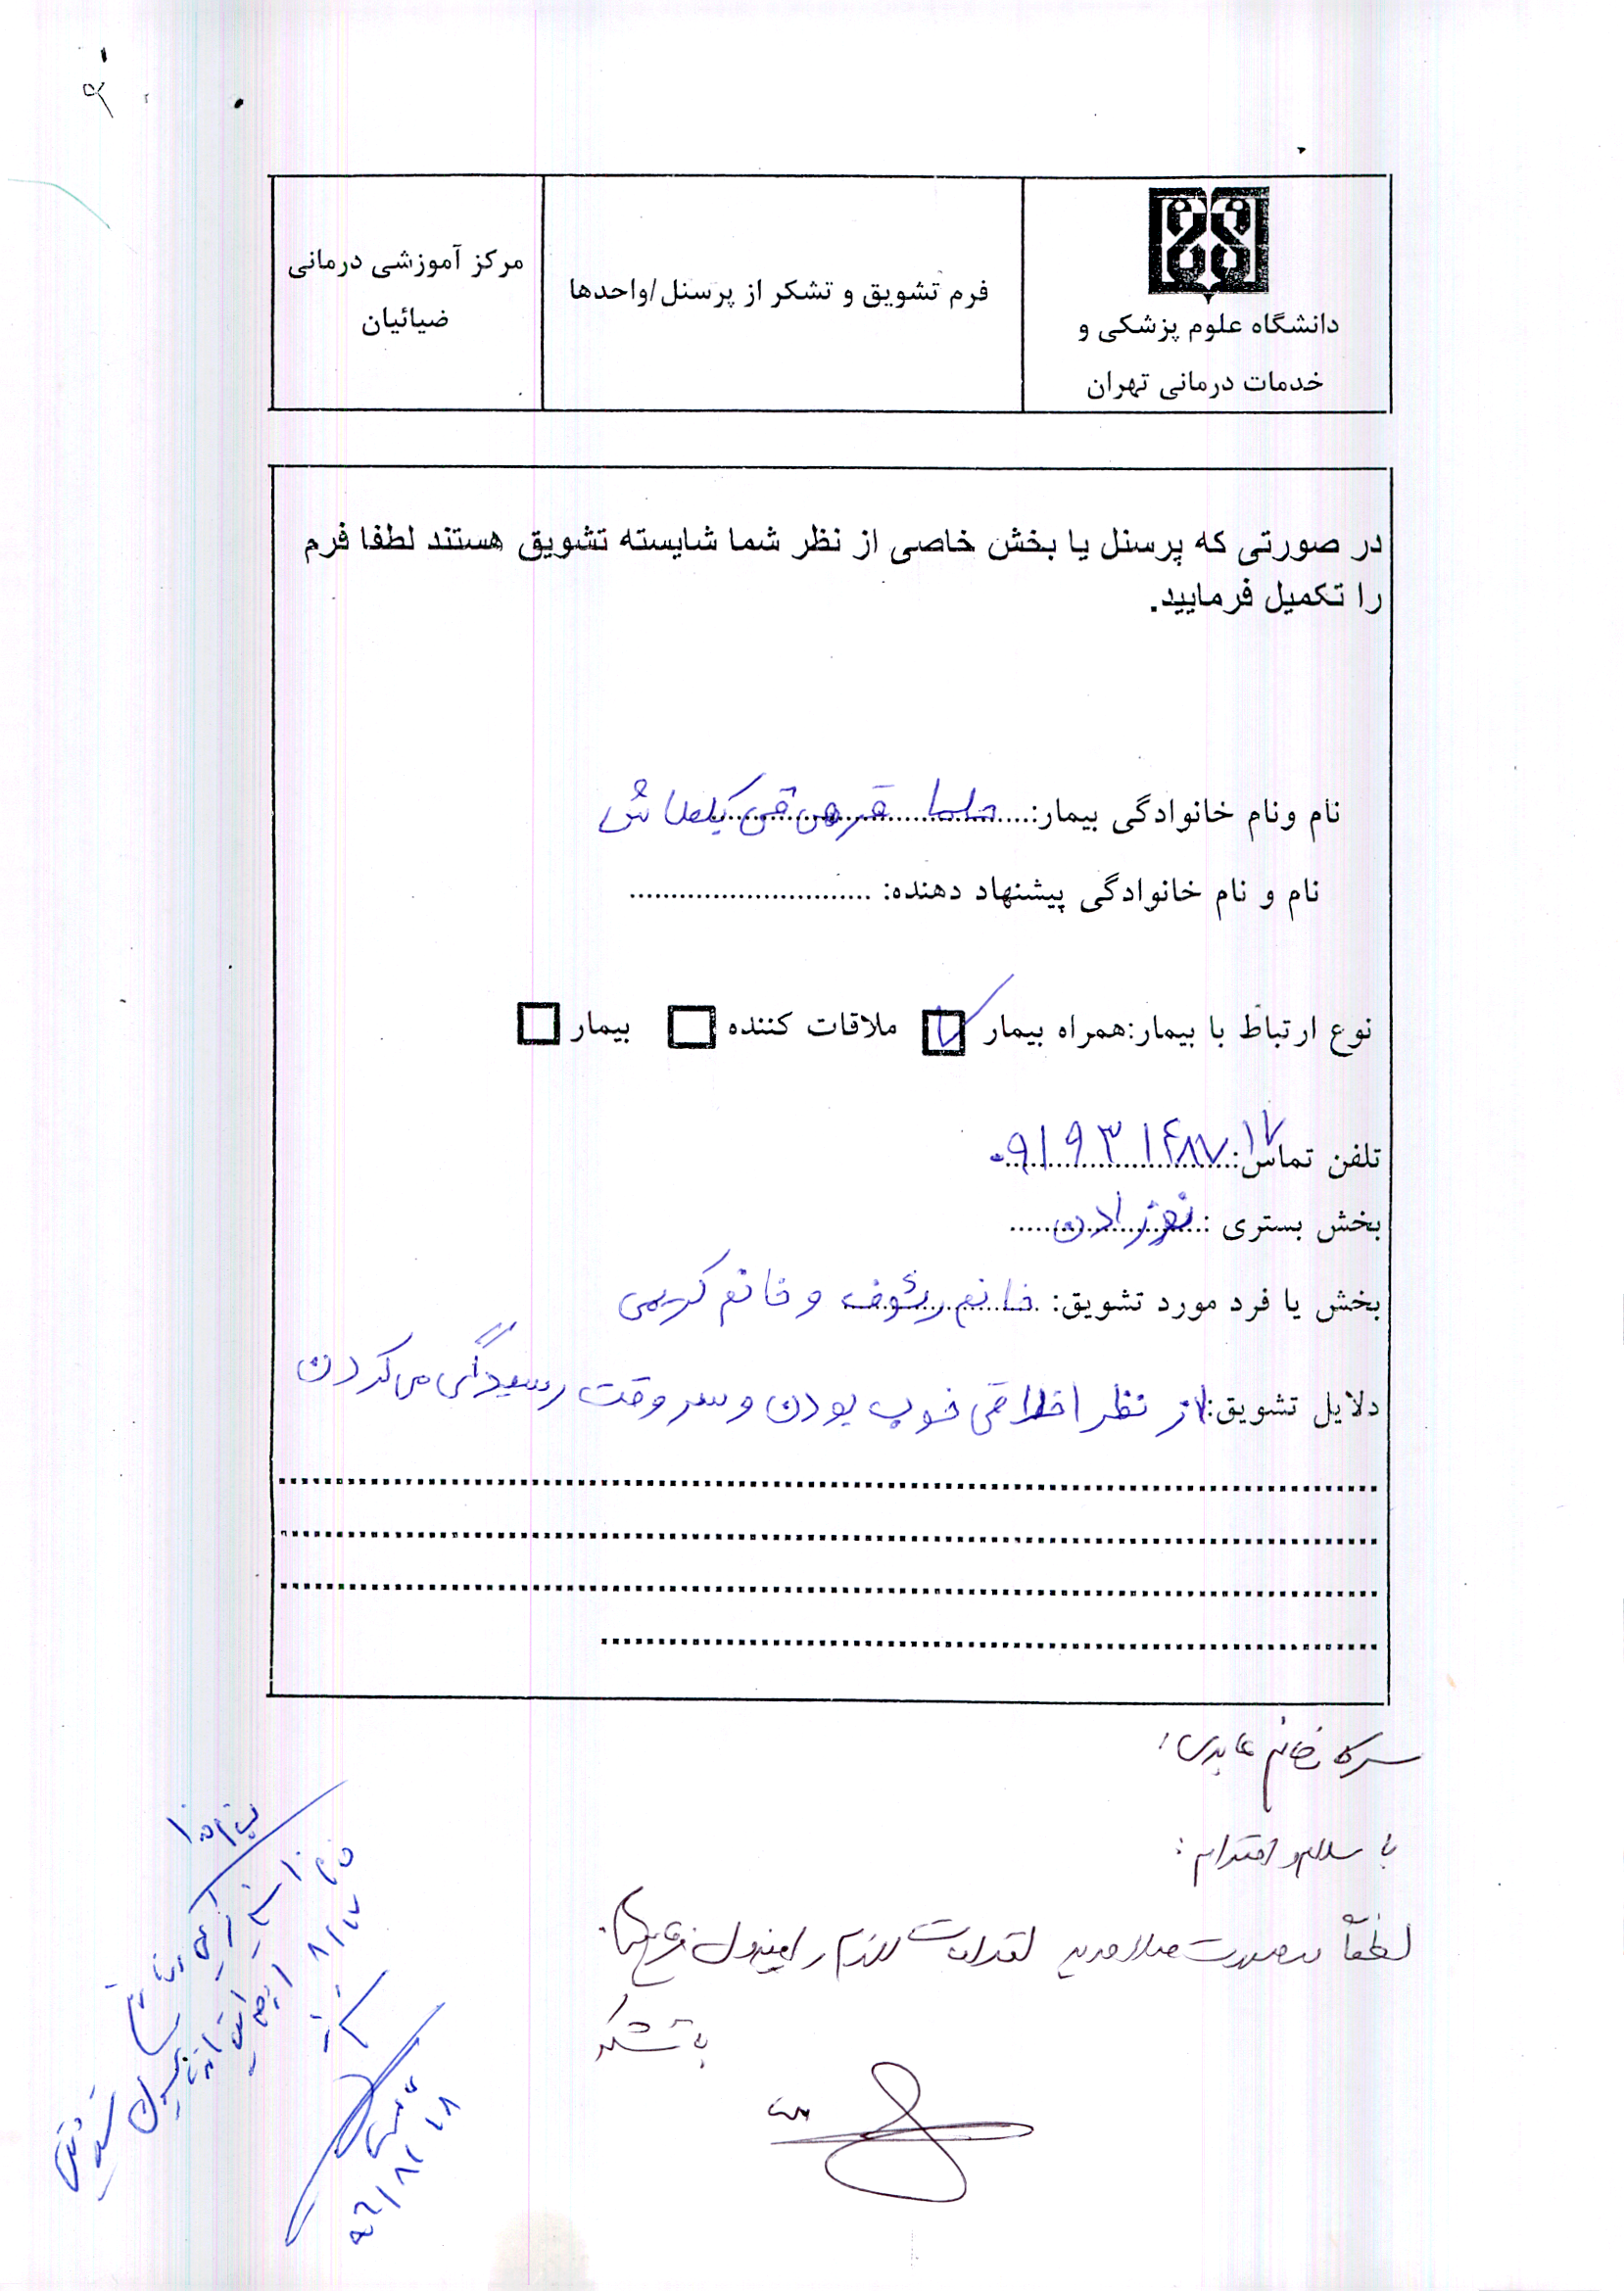 دانشگاه علوم پزشکی و
خدمات درمانی تهران
فرم تشویق و تشکر از پرسنل/واحدها
مرکز آموزشی درمانی
ضیائیان
در صورتی که پرسنل یا بخش خاصی از نظر شما شایسته تشویق هستند لطفا فرم
را تکمیل فرمایید.
نام ونام خانوادگی بیمار:
نام و نام خانوادگی پیشنهاد دهنده: ............................
نوع ارتباط با بیمار:همراه بیمار ملاقات کننده بیمار
تلفن تماس: ۰۹۱۹۳۱۴۸۷۱۷
بخش بستری : نوزادن
بخش یا فرد مورد تشویق: خانم رئوف و خانم کریمی
دلایل تشویق: از نظر اخلاقی خوب بودن و سر وقت رسیدگی می کردن
سرکار خانم عابدی
با سلام و احترام :
لطفاً در صورت صلاحدید اقدامات لازم را مبذول فرمایید
با تشکر
۹۶/۸/۲۸